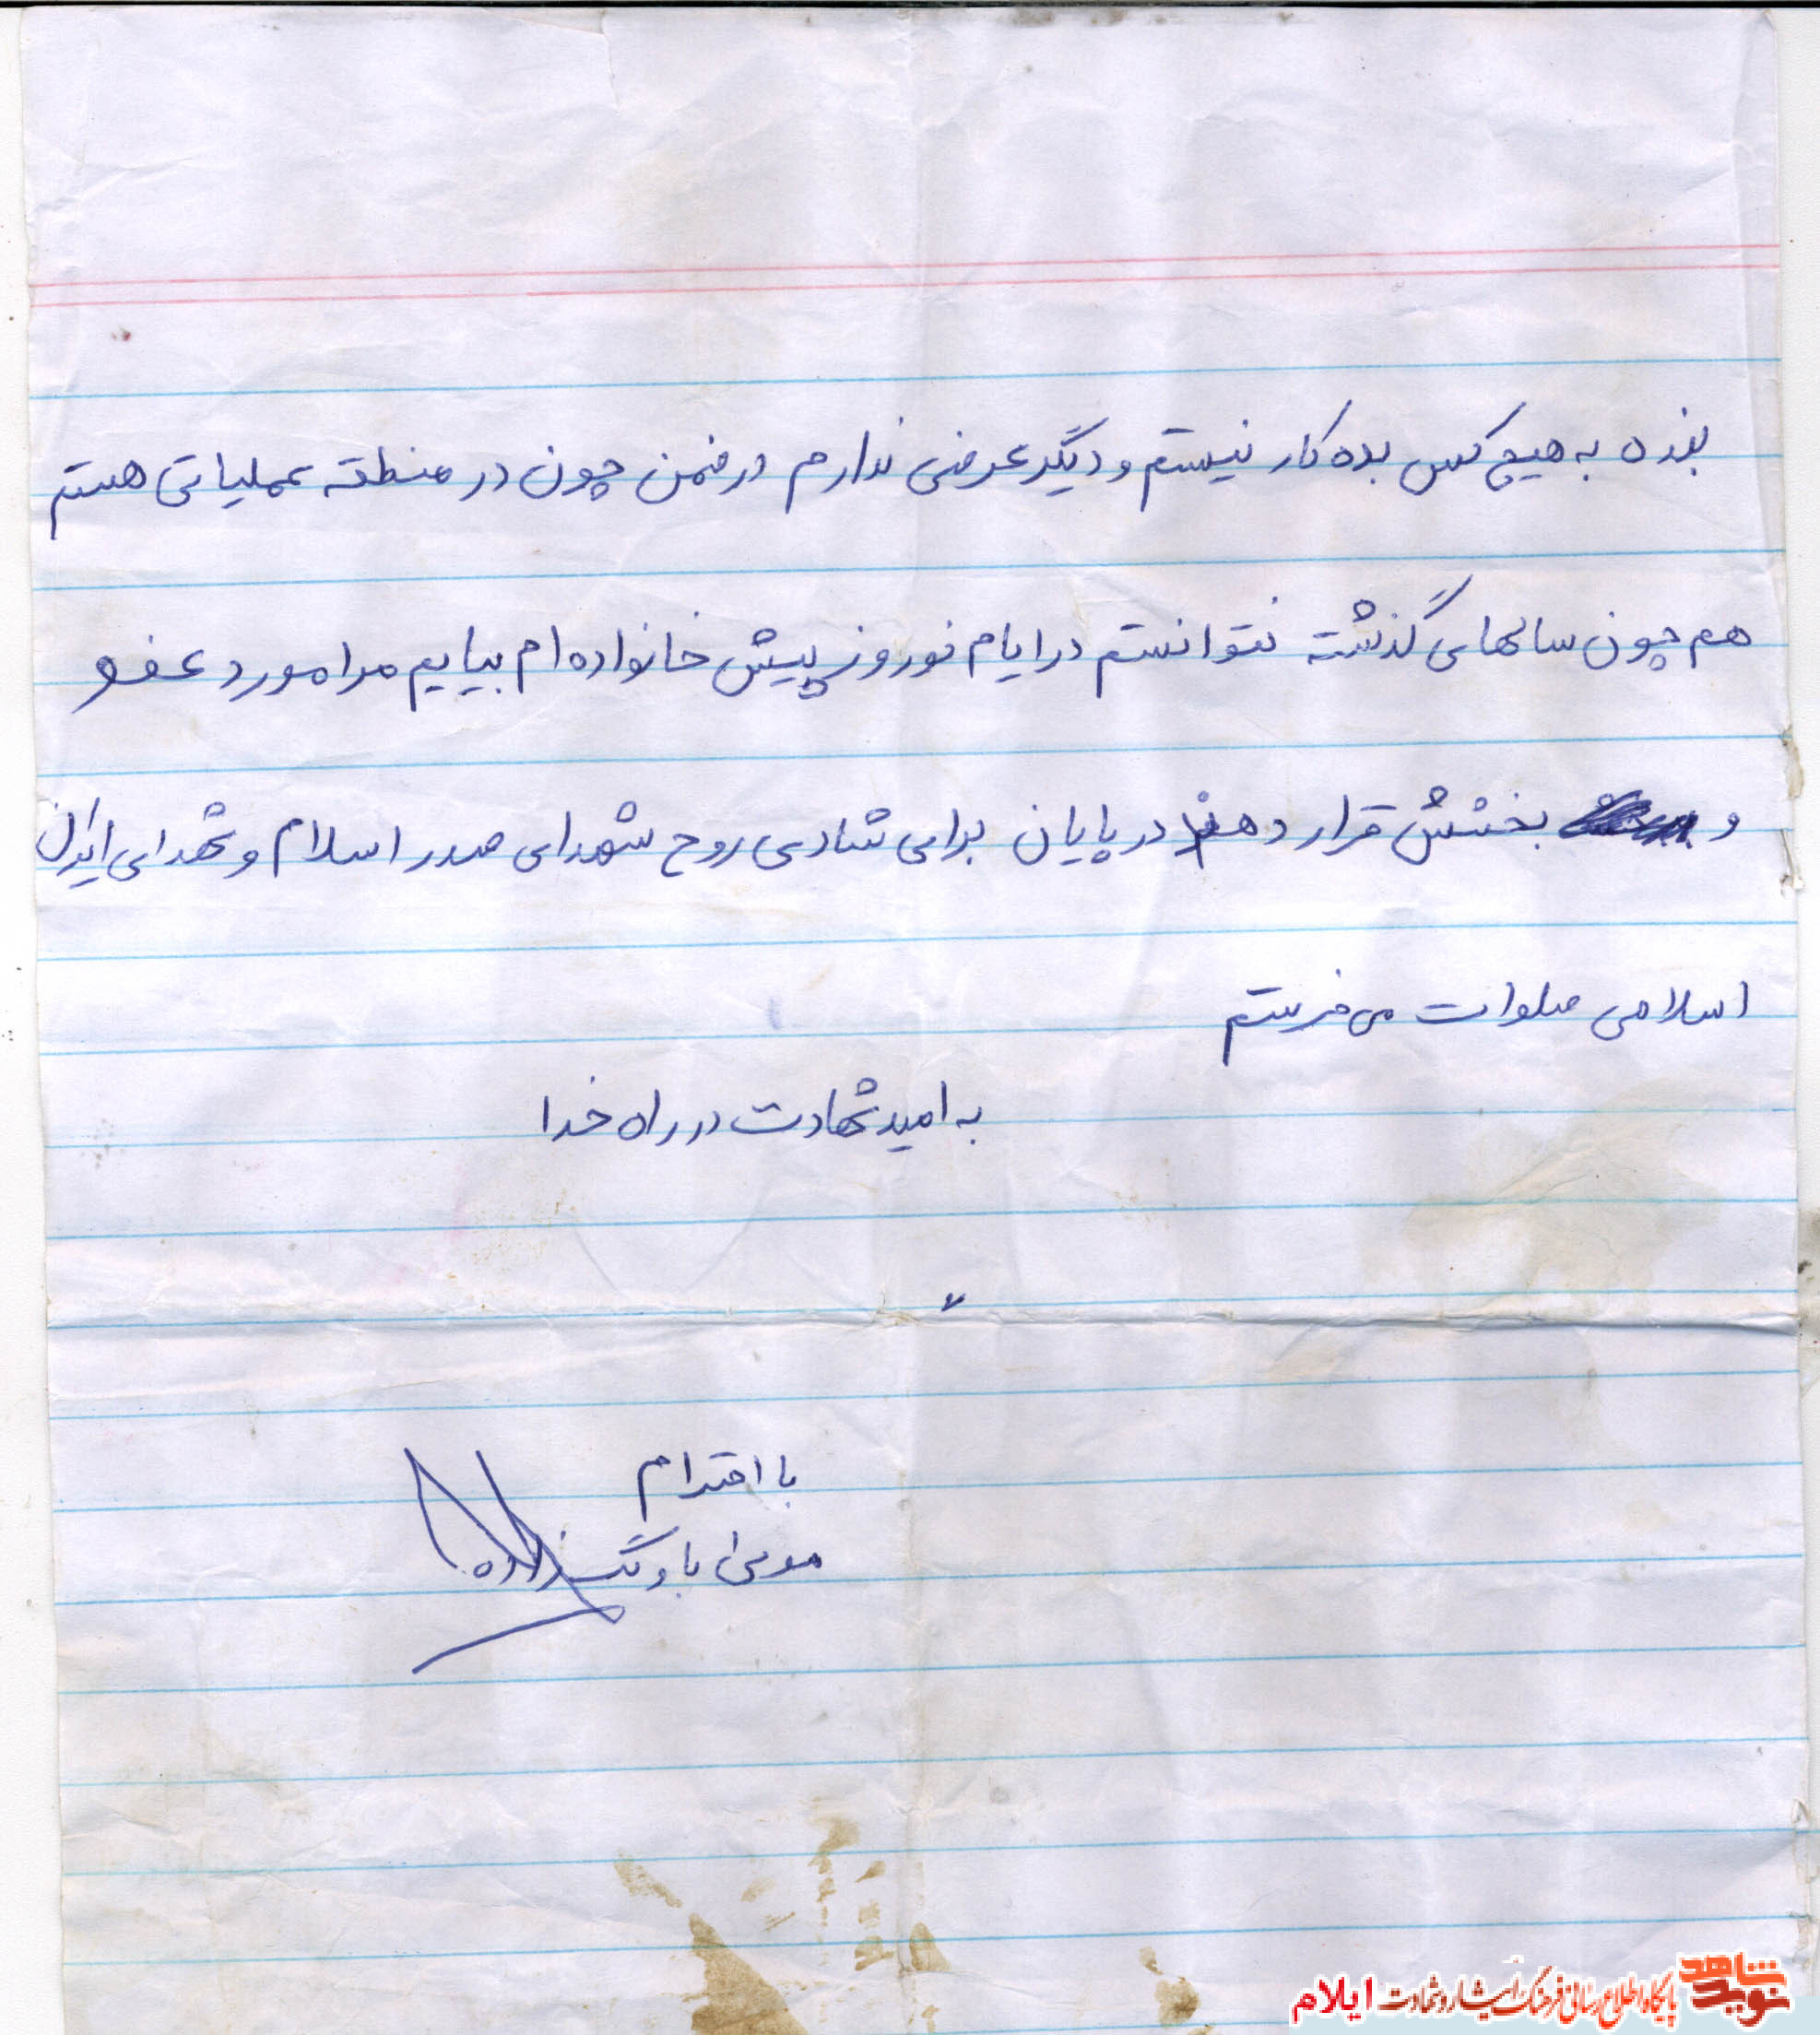 بنده به هیچ کس بده کار نیستم و دیگر عرضی ندارم درضمن چون در منطقه عملیاتی هستم
هم چون سالهای گذشته نتوانستم در ایام نوروز پیش خانواده ام بیایم مرا مورد عفو
و بخشش قرار دهند در پایان برای شادی روح شهدای صدر اسلام و شهدای ایران
اسلامی صلوات می فرستم
به امید شهادت در راه خدا
با احترام
موسی
نوید شاهد
پایگاه اطلاع رسانی فرهنگ ایثار و شهادت ایلام